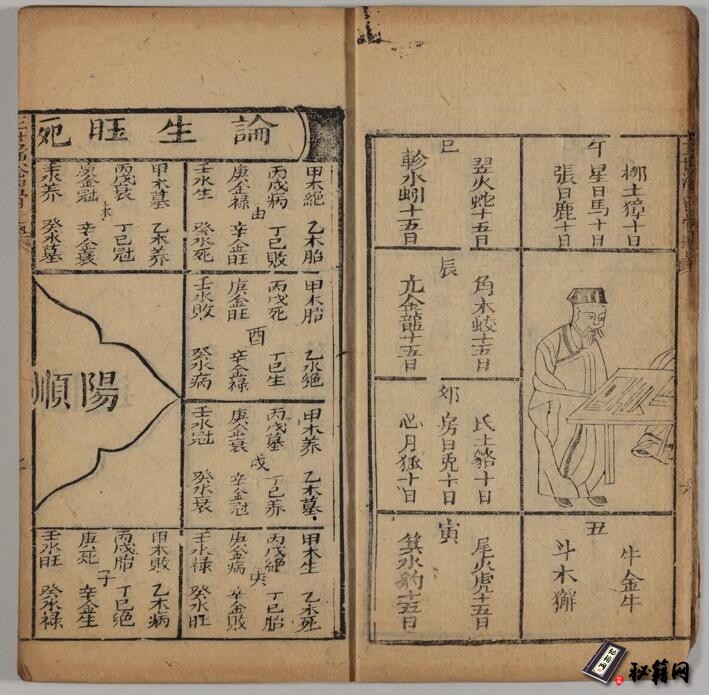 柳土獐十日
午
星日馬十日
張日鹿十日
巳
翌火蛇十五日
軫水蚓十五日
辰
角木蛟十五日
亢金龍十五日
卯
氐土貉十日
房日兎十日
心月狐十日
寅
尾火虎十五日
箕水豹十五日
丑
牛金牛
斗木獬
六
論生旺死
甲木絕 乙木胎
丙戊病 丁巳敗
申
庚金祿 辛金旺
壬水生 癸水死
甲木墓 乙木养
丙戊衰 丁巳冠
未
庚金冠 辛金衰
壬水养 癸水墓
甲木胎 乙水絕
丙戊死 丁巳生
酉
庚金旺 辛金祿
壬水敗 癸水病
甲木养 乙木墓
丙戊墓 丁巳养
戌
庚金衰 辛金冠
壬水冠 癸水衰
甲木生 乙木死
丙戊絕 丁巳胎
亥
庚金病 辛金敗
壬水祿 癸水旺
甲木敗 乙木病
丙戊胎 丁巳絕
子
庚死 辛金生
壬水旺 癸水祿
陽順
秘籍网